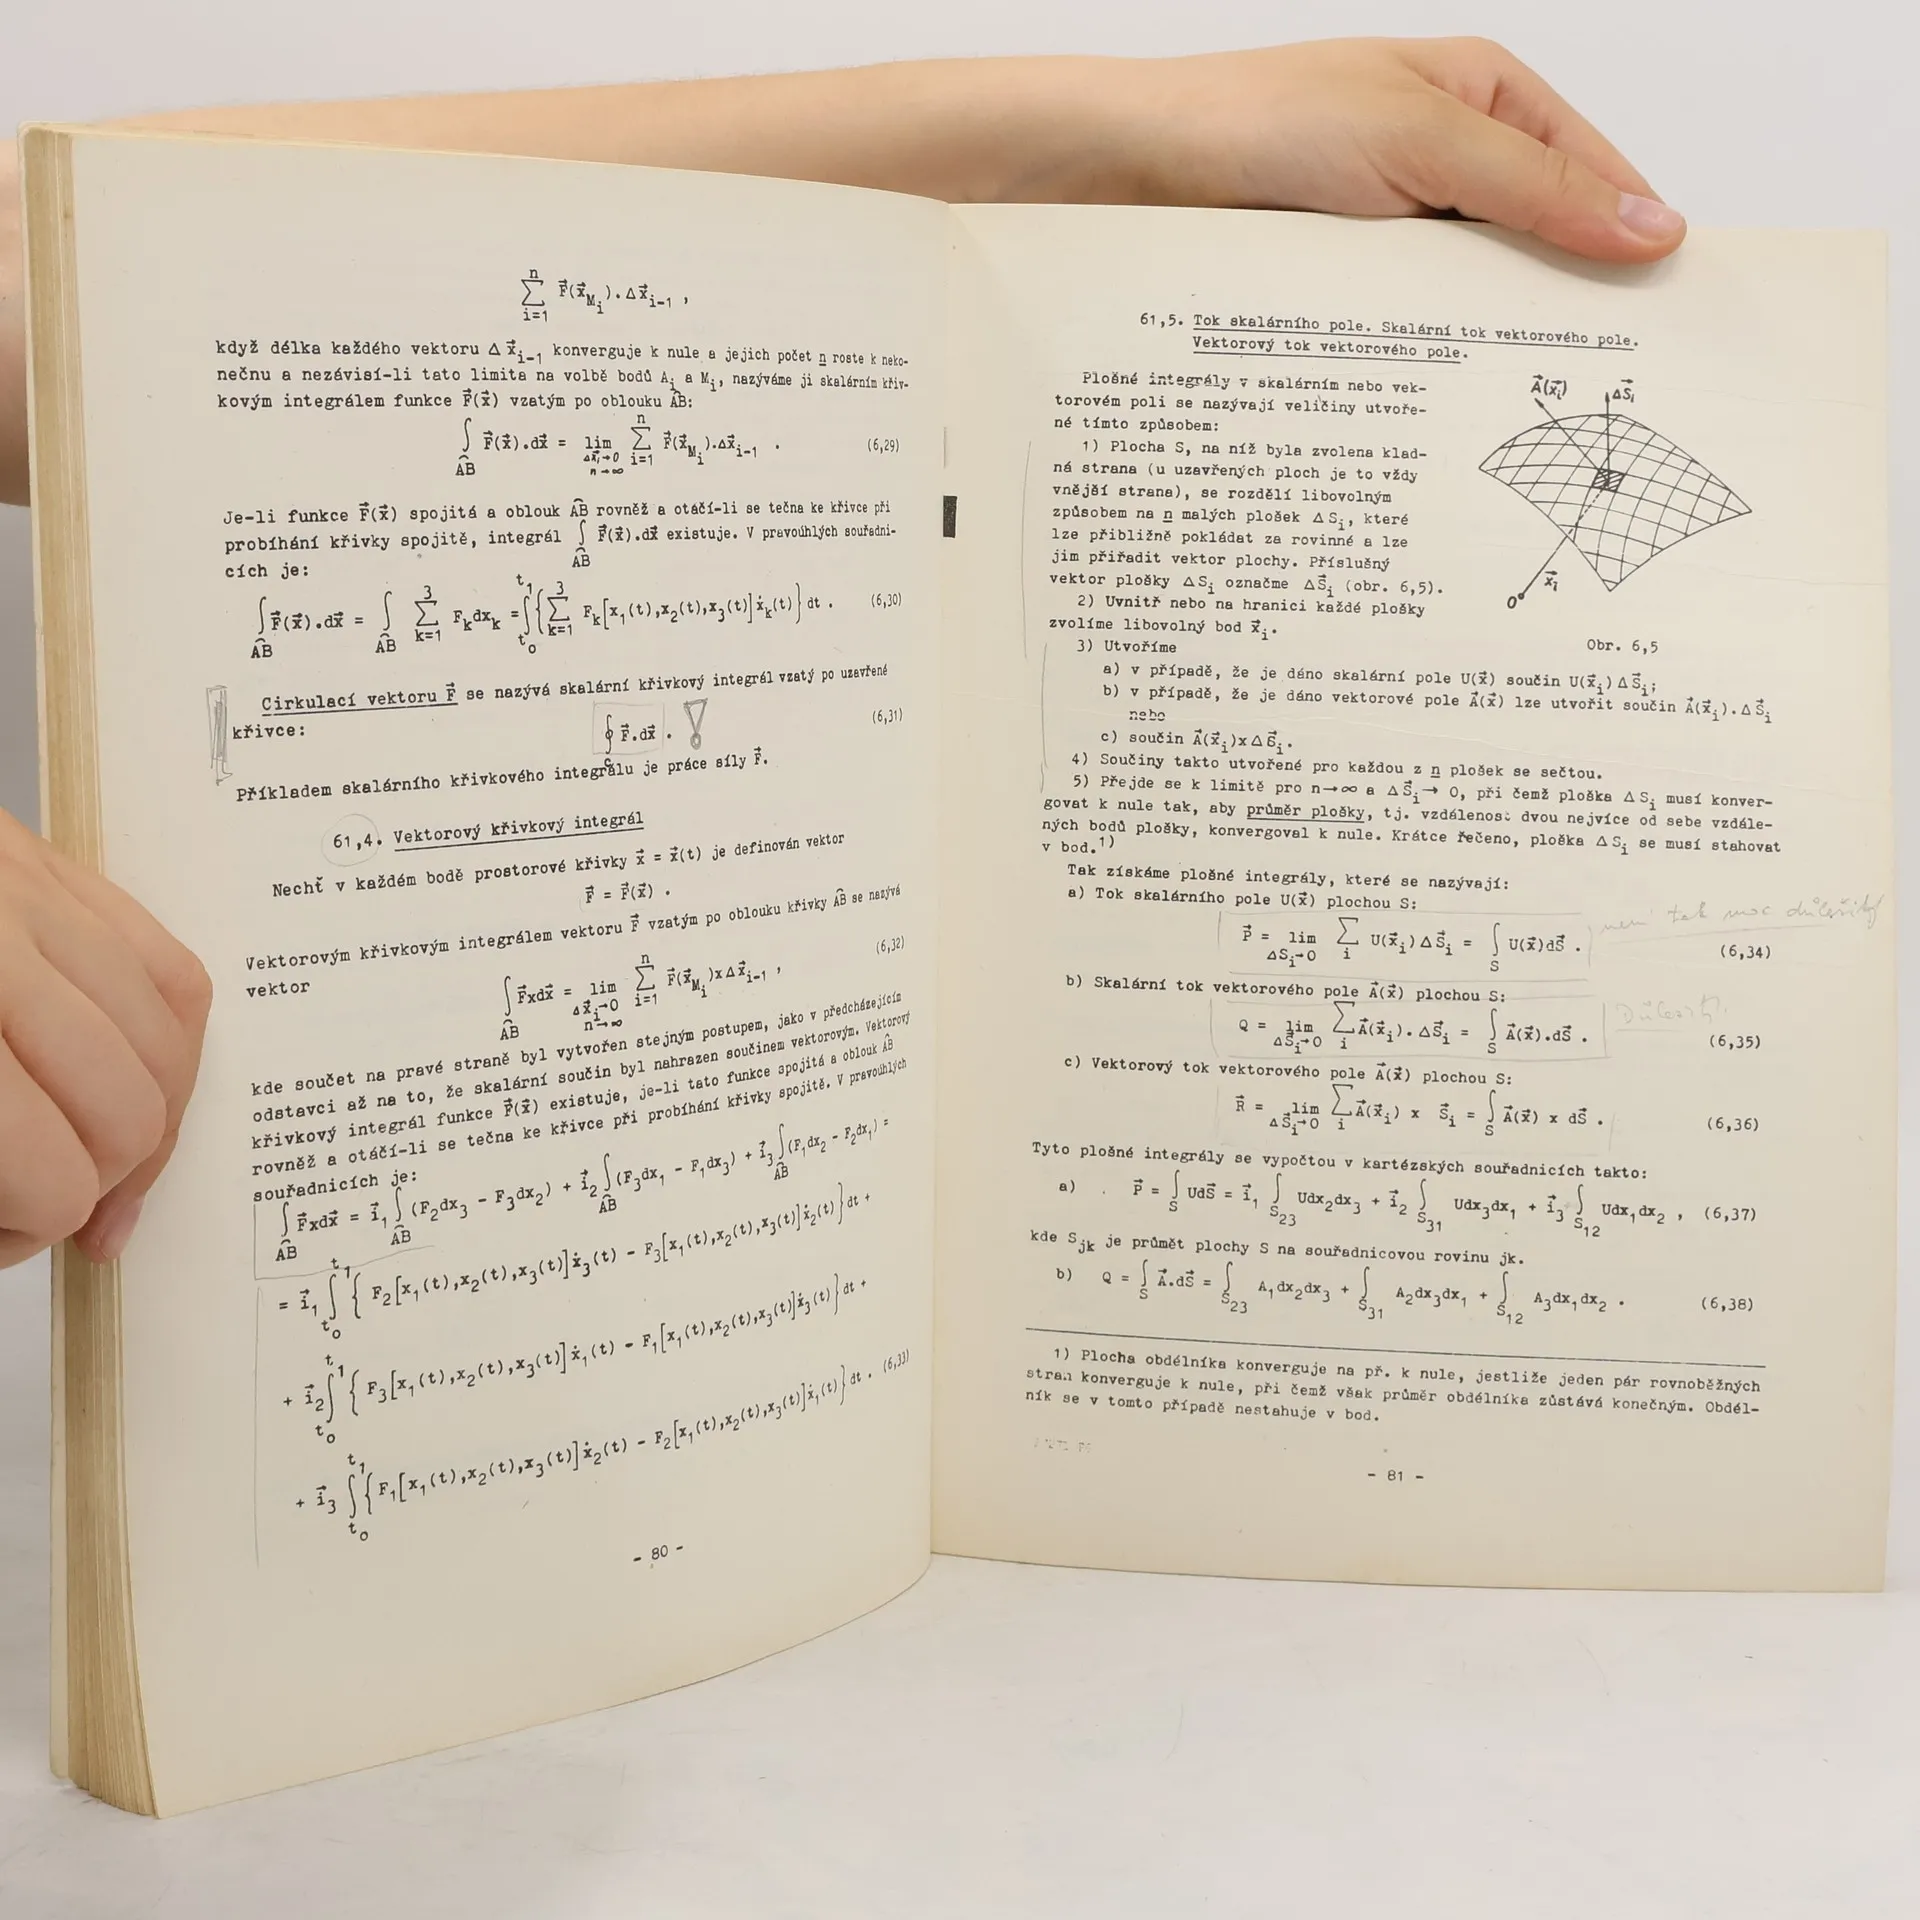 n
∑ F⃗(x⃗_Mi).Δx⃗_i-1 ,
i=1
když délka každého vektoru Δ x⃗_i-1 konverguje k nule a jejich počet n roste k neko-
nečnu a nezávisí-li tato limita na volbě bodů A_i a M_i, nazýváme ji skalárním křiv-
kovým integrálem funkce F⃗(x⃗) vzatým po oblouku AB:
∫_AB F⃗(x⃗).dx⃗ = lim_{Δx⃗_i→0, n→∞} ∑_{i=1}^{n} F⃗(x⃗_Mi).Δx⃗_i-1 . (6,29)
Je-li funkce F⃗(x⃗) spojitá a oblouk AB rovněž a otáčí-li se tečna ke křivce při
probíhání křivky spojitě, integrál ∫_AB F⃗(x⃗).dx⃗ existuje. V pravoúhlých souřadni-
cích je:
∫_AB F⃗(x⃗).dx⃗ = ∫_AB ∑_{k=1}^{3} F_k dx_k = ∫_{t_0}^{t_1} {∑_{k=1}^{3} F_k[x_1(t),x_2(t),x_3(t)]ẋ_k(t)} dt . (6,30)
Cirkulací vektoru F⃗ se nazývá skalární křivkový integrál vzatý po uzavřené
křivce:
∮_c F⃗.dx⃗ . ! (6,31)
Příkladem skalárního křivkového integrálu je práce síly F⃗.
61,4. Vektorový křivkový integrál
Nechť v každém bodě prostorové křivky x⃗ = x⃗(t) je definován vektor
F⃗ = F⃗(x⃗) .
Vektorovým křivkovým integrálem vektoru F⃗ vzatým po oblouku křivky AB se nazývá
vektor
∫_AB F⃗xdx⃗ = lim_{Δx⃗_i→0, n→∞} ∑_{i=1}^{n} F⃗(x⃗_Mi)xΔx⃗_i-1 , (6,32)
kde součet na pravé straně byl vytvořen stejným postupem, jako v předcházejícím
odstavci až na to, že skalární součin byl nahrazen součinem vektorovým. Vektorový
křivkový integrál funkce F⃗(x⃗) existuje, je-li tato funkce spojitá a oblouk AB
rovněž a otáčí-li se tečna ke křivce při probíhání křivky spojitě. V pravoúhlých
souřadnicích je:
∫_AB F⃗xdx⃗ = i⃗_1 ∫_AB (F_2dx_3 - F_3dx_2) + i⃗_2 ∫_AB (F_3dx_1 - F_1dx_3) + i⃗_3 ∫_AB (F_1dx_2 - F_2dx_1) =
= i⃗_1 ∫_{t_0}^{t_1} { F_2[x_1(t),x_2(t),x_3(t)]ẋ_3(t) - F_3[x_1(t),x_2(t),x_3(t)]ẋ_2(t)} dt +
+ i⃗_2 ∫_{t_0}^{t_1} { F_3[x_1(t),x_2(t),x_3(t)]ẋ_1(t) - F_1[x_1(t),x_2(t),x_3(t)]ẋ_3(t)} dt +
+ i⃗_3 ∫_{t_0}^{t_1} { F_1[x_1(t),x_2(t),x_3(t)]ẋ_2(t) - F_2[x_1(t),x_2(t),x_3(t)]ẋ_1(t)} dt . (6,33)
- 80 -
61,5. Tok skalárního pole. Skalární tok vektorového pole.
Vektorový tok vektorového pole.
Plošné integrály v skalárním nebo vek-
torovém poli se nazývají veličiny utvoře-
né tímto způsobem:
1) Plocha S, na níž byla zvolena klad-
ná strana (u uzavřených ploch je to vždy
vnější strana), se rozdělí libovolným
způsobem na n malých plošek ΔS_i, které
lze přibližně pokládat za rovinné a lze
jim přiřadit vektor plochy. Příslušný
vektor plošky ΔS_i označme ΔS⃗_i (obr. 6,5).
2) Uvnitř nebo na hranici každé plošky
zvolíme libovolný bod x⃗_i.
A⃗(x⃗_i)
ΔS⃗_i
x⃗_i
0
Obr. 6,5
3) Utvoříme
a) v případě, že je dáno skalární pole U(x⃗) součin U(x⃗_i)ΔS⃗_i;
b) v případě, že je dáno vektorové pole A⃗(x⃗) lze utvořit součin A⃗(x⃗_i).ΔS⃗_i
nebo
c) součin A⃗(x⃗_i)xΔS⃗_i.
4) Součiny takto utvořené pro každou z n plošek se sečtou.
5) Přejde se k limitě pro n→∞ a ΔS⃗_i→ 0, při čemž ploška ΔS_i musí konver-
govat k nule tak, aby průměr plošky, tj. vzdálenost dvou nejvíce od sebe vzdále-
ných bodů plošky, konvergoval k nule. Krátce řečeno, ploška ΔS_i se musí stahovat
v bod.1)
Tak získáme plošné integrály, které se nazývají:
a) Tok skalárního pole U(x⃗) plochou S:
není tak moc důležitý
P⃗ = lim_{ΔS_i→0} ∑_i U(x⃗_i)ΔS⃗_i = ∫_S U(x⃗)dS⃗ . (6,34)
b) Skalární tok vektorového pole A⃗(x⃗) plochou S:
Důležitý.
Q = lim_{ΔS⃗_i→0} ∑_i A⃗(x⃗_i).ΔS⃗_i = ∫_S A⃗(x⃗).dS⃗ . (6,35)
c) Vektorový tok vektorového pole A⃗(x⃗) plochou S:
R⃗ = lim_{ΔS⃗_i→0} ∑_i A⃗(x⃗_i) x S⃗_i = ∫_S A⃗(x⃗) x dS⃗ . (6,36)
Tyto plošné integrály se vypočtou v kartézských souřadnicích takto:
a) P⃗ = ∫_S UdS⃗ = i⃗_1 ∫_{S_23} Udx_2dx_3 + i⃗_2 ∫_{S_31} Udx_3dx_1 + i⃗_3 ∫_{S_12} Udx_1dx_2 , (6,37)
kde S_jk je průmět plochy S na souřadnicovou rovinu jk.
b) Q = ∫_S A⃗.dS⃗ = ∫_{S_23} A_1dx_2dx_3 + ∫_{S_31} A_2dx_3dx_1 + ∫_{S_12} A_3dx_1dx_2 . (6,38)
1) Plocha obdélníka konverguje na př. k nule, jestliže jeden pár rovnoběžných
stran konverguje k nule, při čemž však průměr obdélníka zůstává konečným. Obdél-
ník se v tomto případě nestahuje v bod.
- 81 -